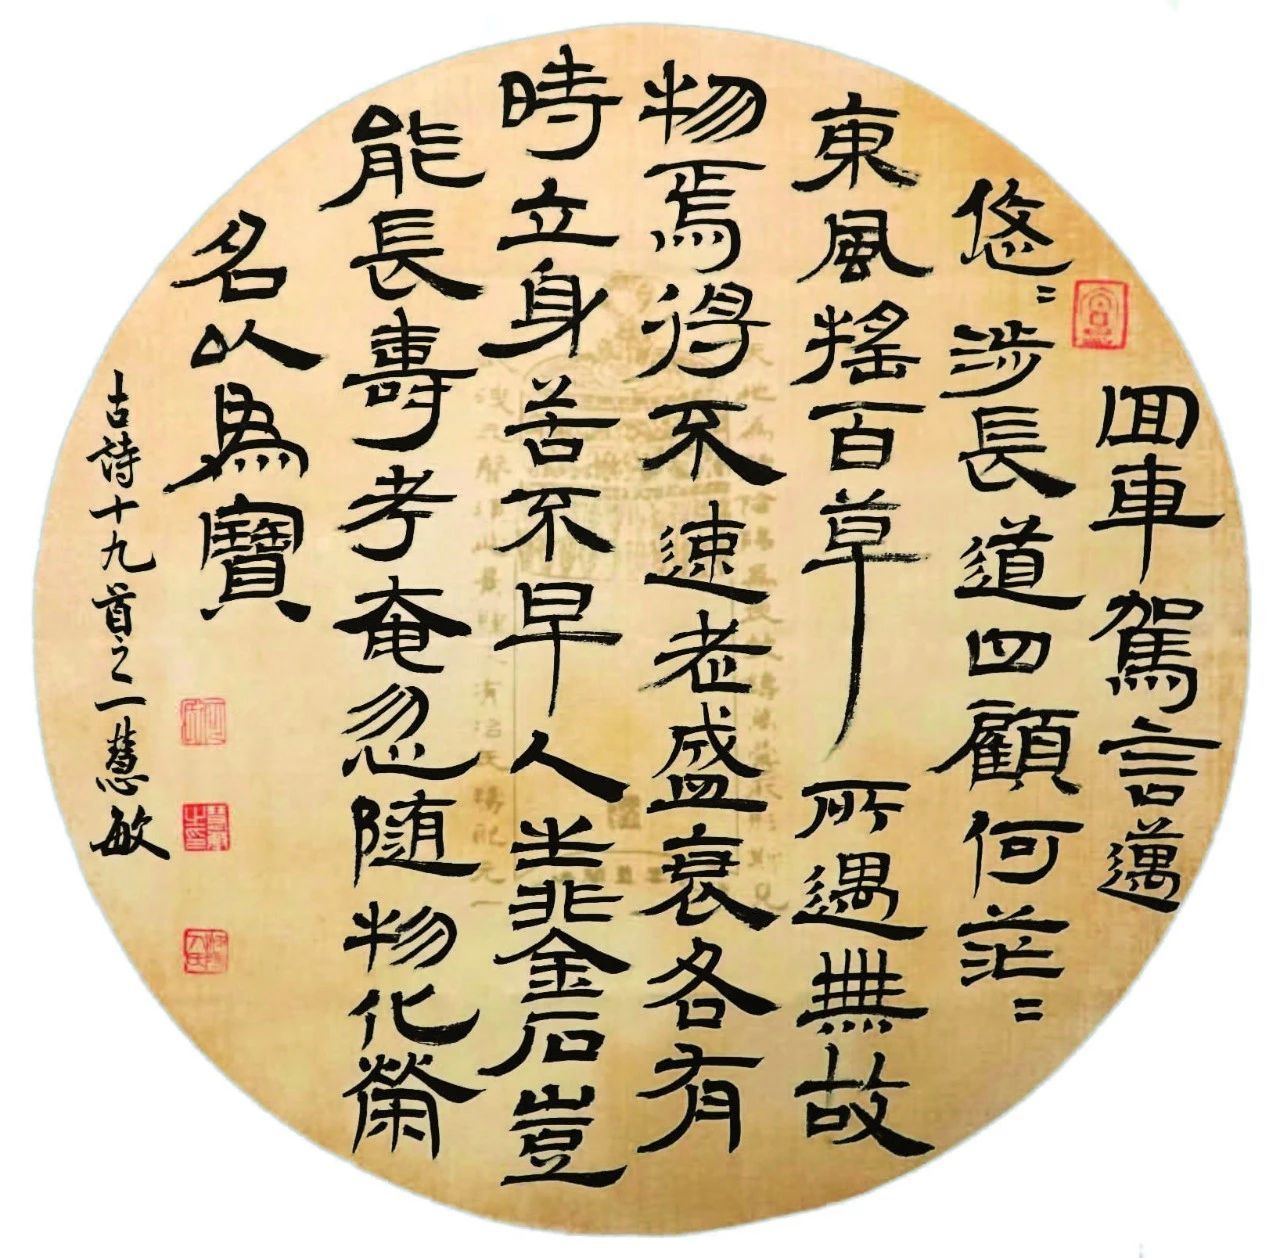 回車駕言邁
悠〻涉長道四顧何茫〻
東風搖百草所遇無故
物焉得不速老盛衰各有
時立身苦不早人生非金石豈
能長壽考奄忽隨物化榮
名以為寶
古詩十九首之一慧敏